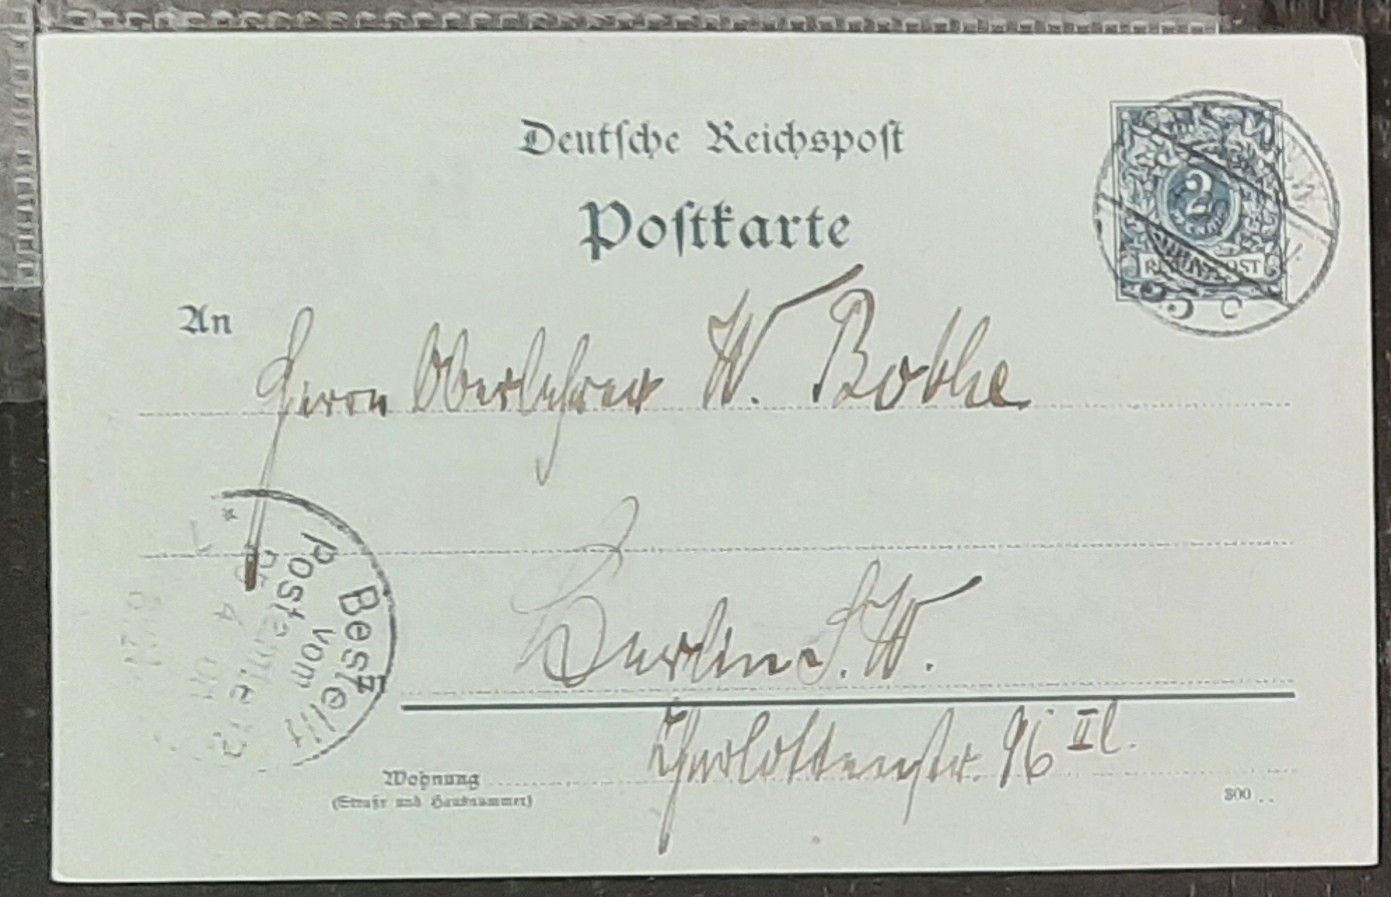 Deutsche Reichspost
Postkarte
2
REICHSPOST
An
Herrn Oberlehrer W. Bothe
Berlin S.W.
Charlottenstr. 96 II l.
Wohnung
(Straße und Hausnummer)
300
Bestellt
vom
Postamte
5